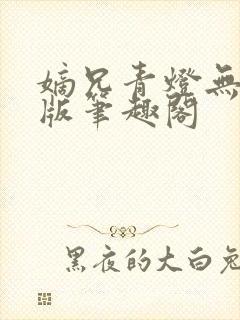 嫡兄青燈無
版筆趣閣
黑夜的大白兔